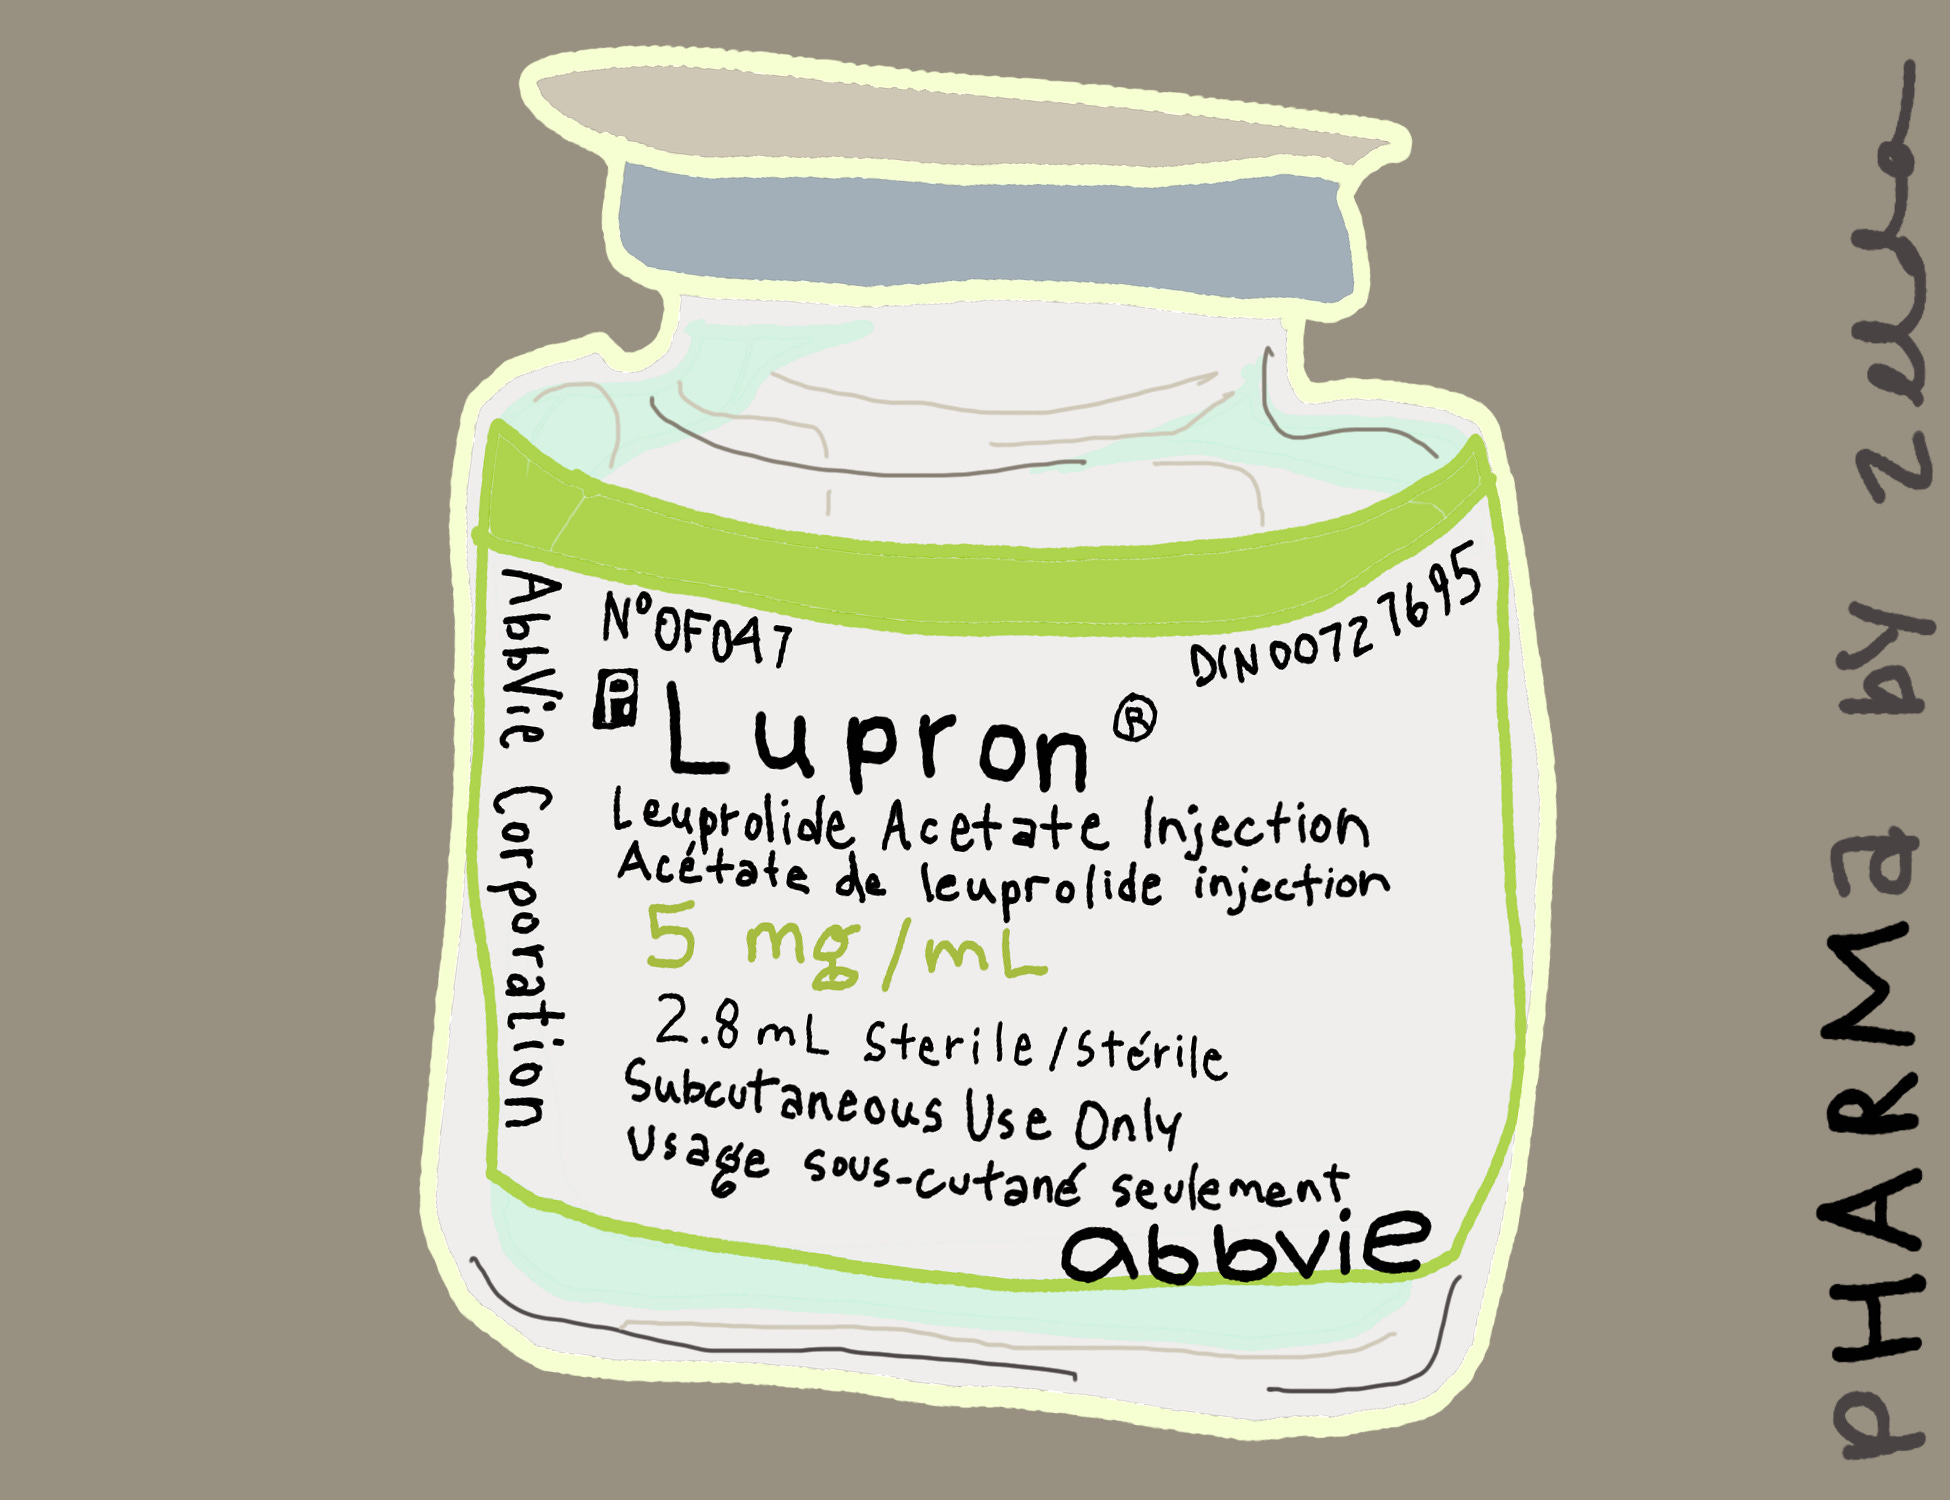 N°OF047
DIN00727695
P Lupron®
Leuprolide Acetate Injection
Acétate de leuprolide injection
5 mg/mL
2.8 mL Sterile/Stérile
Subcutaneous Use Only
Usage sous-cutané seulement
abbvie
AbbVie Corporation
PHARMa by